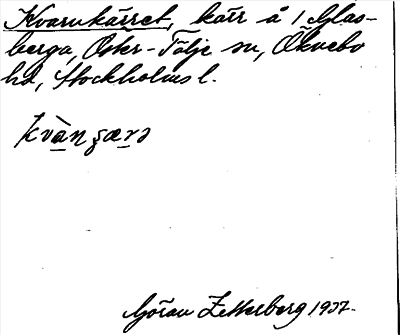 Kvarnkärret, kärr å 1 Glas-
berga, Öster-Tälje sn, Öknebo
hd, Stockholms l.
kvà̱nʂæ̱rə
Göran Zetterberg 1937.